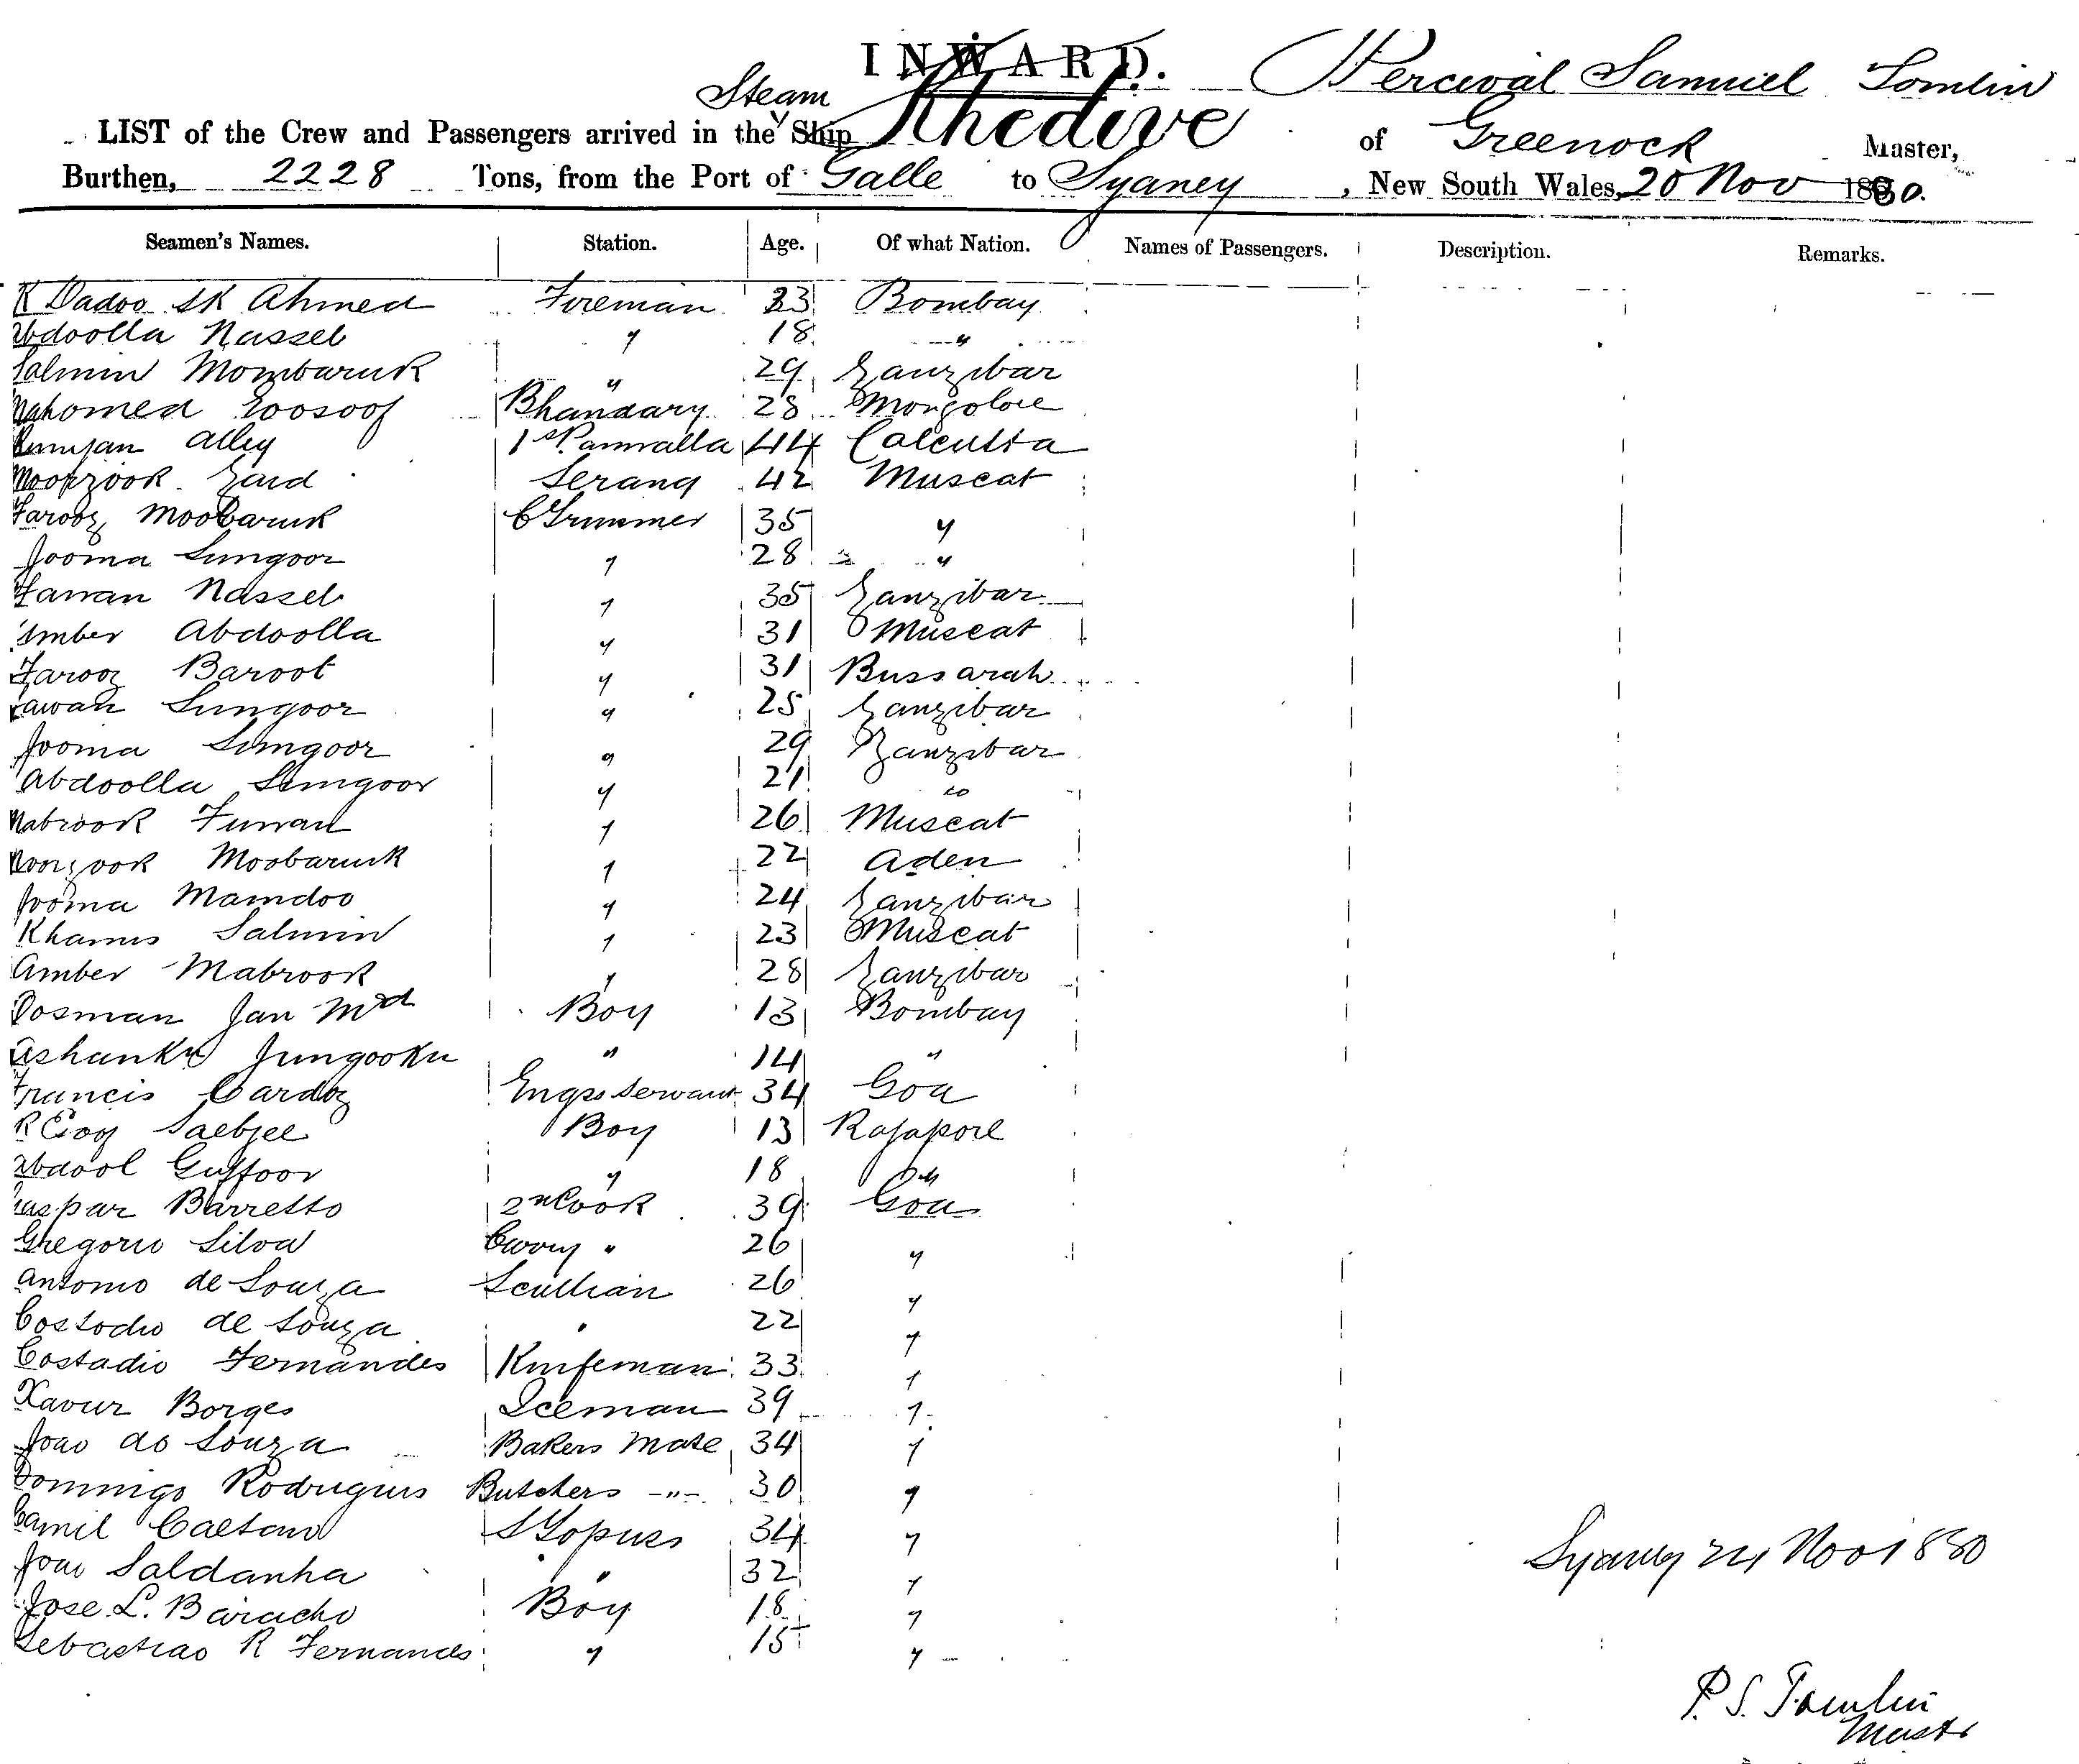 INWARD.
Perceval Samuel Tomlin
Steam
LIST of the Crew and Passengers arrived in the Ship Khedive of Greenock Master,
Burthen, 2228 Tons, from the Port of Galle to Sydney, New South Wales, 20 Nov 1880.
Seamen's Names. Station. Age. Of what Nation. Names of Passengers. Description. Remarks.
Dadoo SK Ahmed Fireman 23 Bombay
Abdoolla Nasseb " 18 "
Salmin Mombaruk " 29 Zanzibar
Mahomed Eoosoof Bhandary 28 Mongolore
Rumjan Alley 1st Panwalla 44 Calcutta
Moorzook Zaid Serang 42 Muscat
Farooz Moobaruk C Trimmer 35 "
Jooma Sungoor " 28 "
Nasseb " 35 Zanzibar
Amber Abdoolla " 31 Muscat
Farooz Baroot " 31 Bussarah
Sungoor " 25 Zanzibar
Jooma Sungoor " 29 Zanzibar
Abdoolla Sungoor " 21 do
Mabrook " 26 Muscat
Moorzook Moobaruk " 22 Aden
Jooma Mamdoo " 24 Zanzibar
Khamis Salmin " 23 Muscat
Amber Mabrook " 28 Zanzibar
Oosman Jan Md Boy 13 Bombay
Jungooku " 14 "
Francis Cardoz Engrs Servant 34 Goa
Saebjee Boy 13 Rajapore
Abdool Guffoor " 18 "
Gaspar Barretto 2nd Cook 39 Goa
Gregorio Silva Curry " 26 "
Antonio de Souza Scullian 26 "
Costodio de Souza " 22 "
Costadio Fernandes Knifeman 33 "
Xavier Borges Iceman 39 "
Joao do Souza Bakers Mate 34 "
Domingo Rodrigues Butchers -"- 30 "
Camil Caetano 34 "
Joao Saldanha " 32 "
Jose L. Baracho Boy 18 "
Sebastiao R Fernandes " 15 "
Sydney 24 Nov 1880
P. S. Tomlin
Master